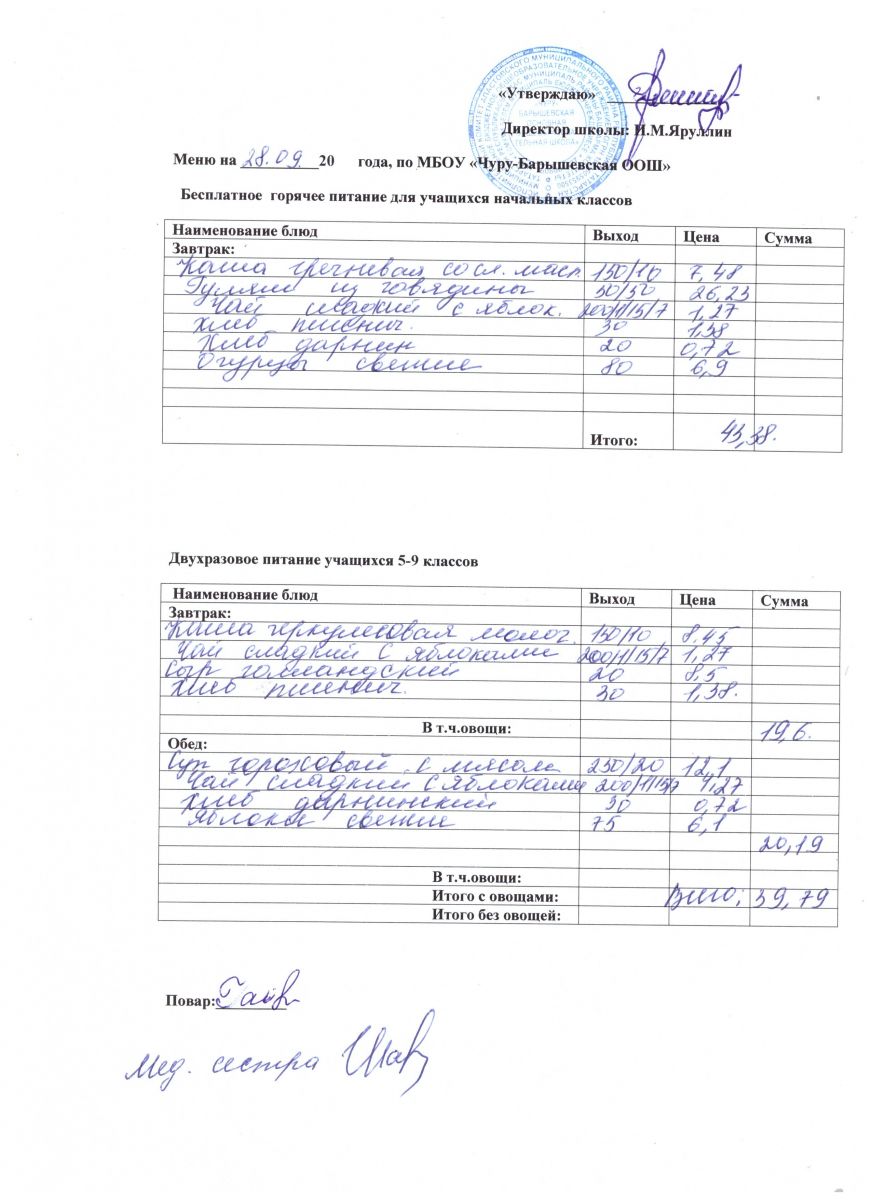 «Утверждаю»
Директор школы: И.М.Яруллин
Меню на 28.09 20 года, по МБОУ «Чуру-Барышевская ООШ»
Бесплатное горячее питание для учащихся начальных классов
Наименование блюд Выход Цена Сумма
Завтрак:
Каша гречневая со сл. масл. 150/10 7,48
Гуляш из говядины 50/50 26,23
Чай сладкий с яблок. 200/1/15/7 1,27
Хлеб пшенич. 30 1,38
Хлеб дарнин 20 0,72
Огурцы свежие 80 6,9
Итого: 43,38.
Двухразовое питание учащихся 5-9 классов
Наименование блюд Выход Цена Сумма
Завтрак:
Каша геркулесовая молоч. 150/10 8.45
Чай сладкий с яблоками 200/1/15/7 1,27
Сыр голландский 20 8,5
Хлеб пшенич. 30 1,38.
В т.ч.овощи: 19,6.
Обед:
Суп гороховый с мясом 250/20 12,1
Чай сладкий с яблоками 200/1/15/7 1,27
Хлеб дарнинский 30 0,72
Яблоки свежие 75 6,1
20,19
В т.ч.овощи:
Итого с овощами: Всего: 39,79
Итого без овощей:
Повар:
Мед. сестра